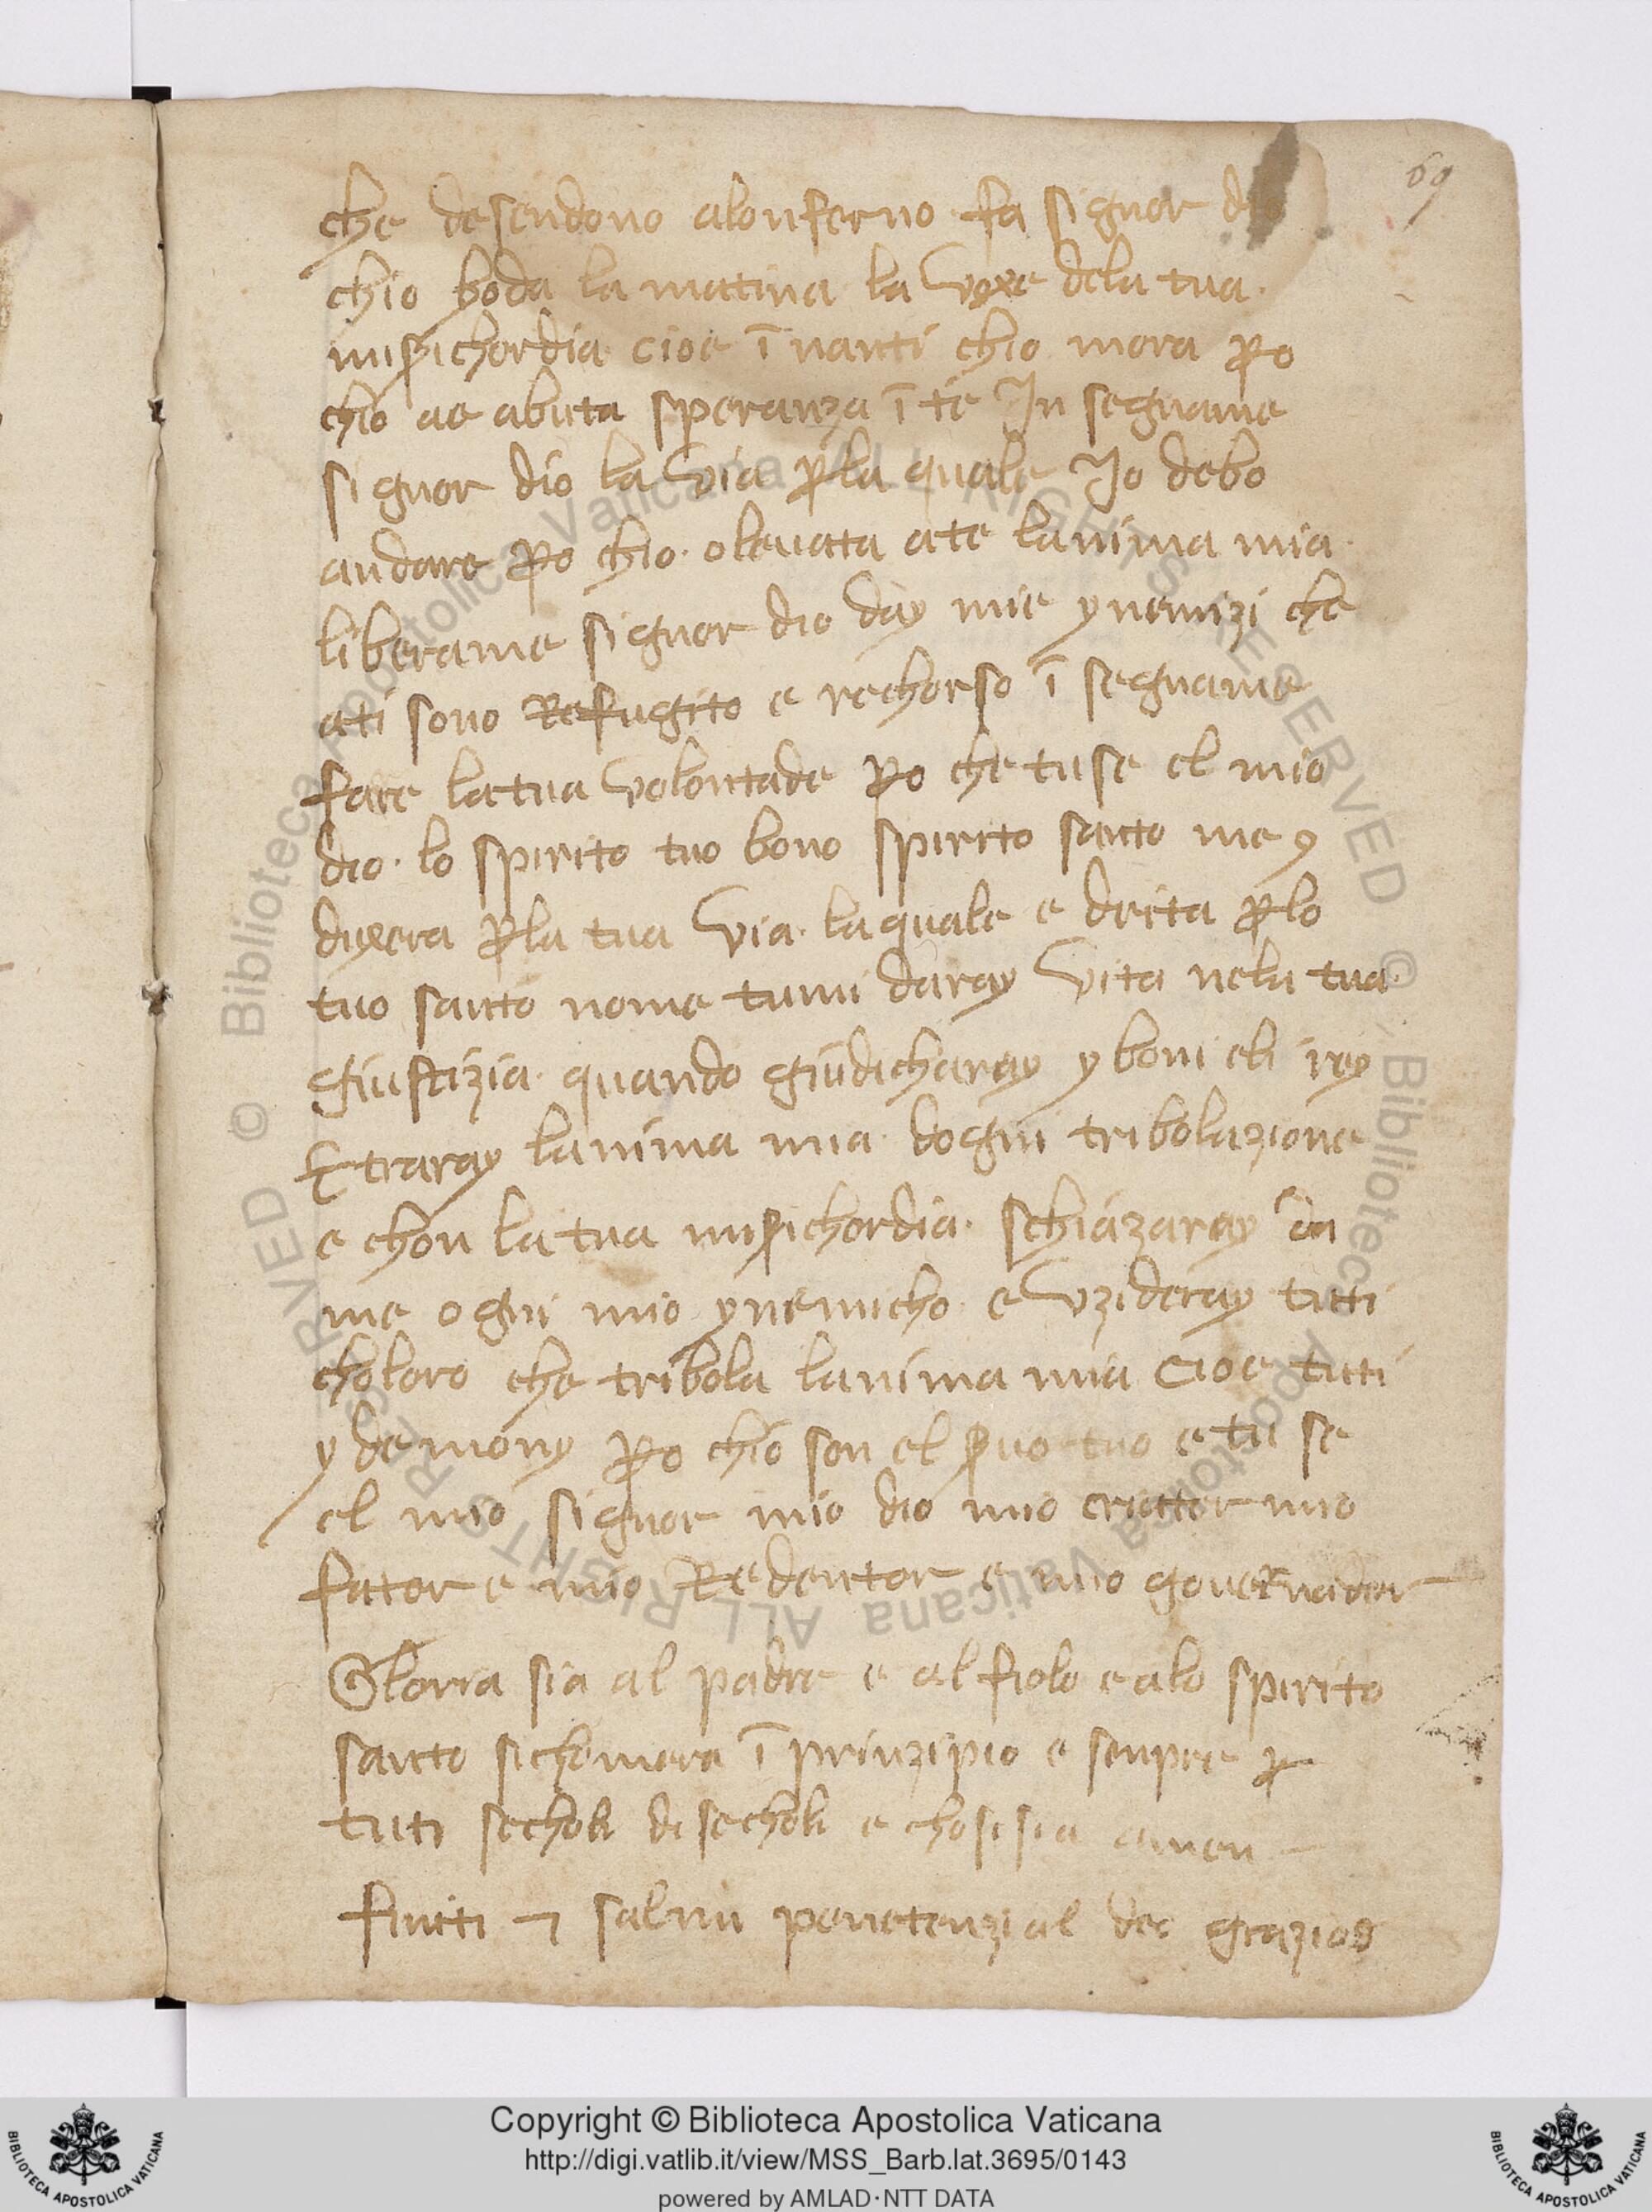 69
che desendono alonferno fa signor dio
chio hoda la matina la voxe dela tua.
mis̃ichordia cioe ī nanti chio mora p̱o
chio ae abuta speranza ī te In segname
signor dio la via p̱la quale Io debo
andare p̱o chio. oleuata ate lanima mia.
liberame signor dio day mie ynemizi che
ati sono Refugito e rechorso ī segname
fare la tua volontade p̱o che tuse el mio
dio. lo spirito tuo bono spirito santo me
dixera p̱la tua via. laquale e drita p̱lo
tuo santo nome tumi daray vita nela tua.
giustizia. quando giudicharay y boni eli rey
Etraray lanima mia. dogni tribolazione
e chon la tua mis̃ichordia. schiazaray da
me ogni mio ynemicho e vzideray tuti
choloro che tribola lanima mia cioe tuti
y demony p̱o chio son el s̃uo tuo e tu se
el mio signor mio dio mio criator mio
fator e mio Redentor e mio gouernador
Gloria sia al padre e al fiolo e alo spirito
santo sichomera ī prinzipio e senpre p̱
tuti secholi di secholi e chosi sia amen
finiti 7 salmi penetenzial deo grazios
Copyright © Biblioteca Apostolica Vaticana
http://digi.vatlib.it/view/MSS_Barb.lat.3695/0143
powered by AMLAD·NTT DATA
BIBLIOTECA APOSTOLICA VATICANA
BIBLIOTECA APOSTOLICA VATICANA
© Biblioteca Apostolica Vaticana ALL RIGHTS RESERVED
© Biblioteca Apostolica Vaticana ALL RIGHTS RESERVED